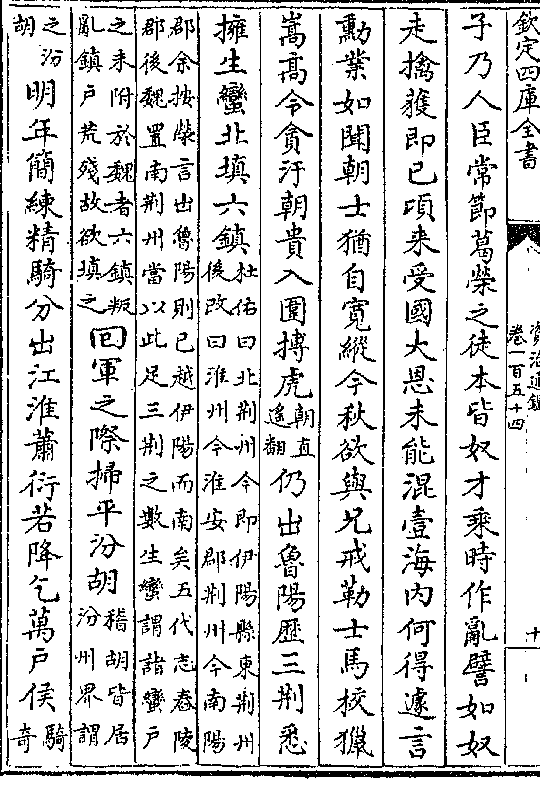 欽定四庫全書
資治通鑑
卷一百五十四
十
子乃人臣常節葛榮之徒本皆奴才乘時作亂譬如奴
走擒獲即已頃来受國大恩未能混壹海内何得遽言
勲業如聞朝士猶自寬縱今秋欲與兄戒勒士馬校獵
嵩髙令貪汙朝貴入圍搏虎朝直遥翻仍出魯陽歷三荆悉
擁生蠻北填六鎮杜佑曰北荆州今即伊陽縣東荆州後改曰淮州今淮安郡荆州今南陽
郡余按榮言出魯陽則已越伊陽而南矣五代志舂陵郡後魏置南荆州當以此足三荆之數生蠻謂諸蠻户
之未附於魏者六鎮叛亂鎮户荒殘故欲填之回軍之際掃平汾胡稽胡皆居汾州界謂
之汾胡明年簡練精騎分出江淮蕭衍若降乞萬户侯騎奇